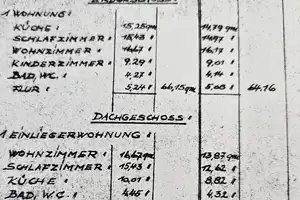 ERDGESCHOSS:
1 WOHNUNG:
KÜCHE: 15,25qm 14,79qm
SCHLAFZIMMER: 15,43" 14,97"
WOHNZIMMER: 16,67" 16,17"
KINDERZIMMER: 9,29" 9,01"
BAD, WC.: 4,27" 4,14"
FLUR: 5,24" 66,15qm 5,08" 64.16
DACHGESCHOSS:
1 EINLIEGERWOHNUNG:
WOHNZIMMER: 16,67qm 13,87qm
SCHLAFZIMMER: 15,43" 12,62"
KÜCHE: 10,01" 8,82"
BAD, W.C.: 4,45" 4,32"